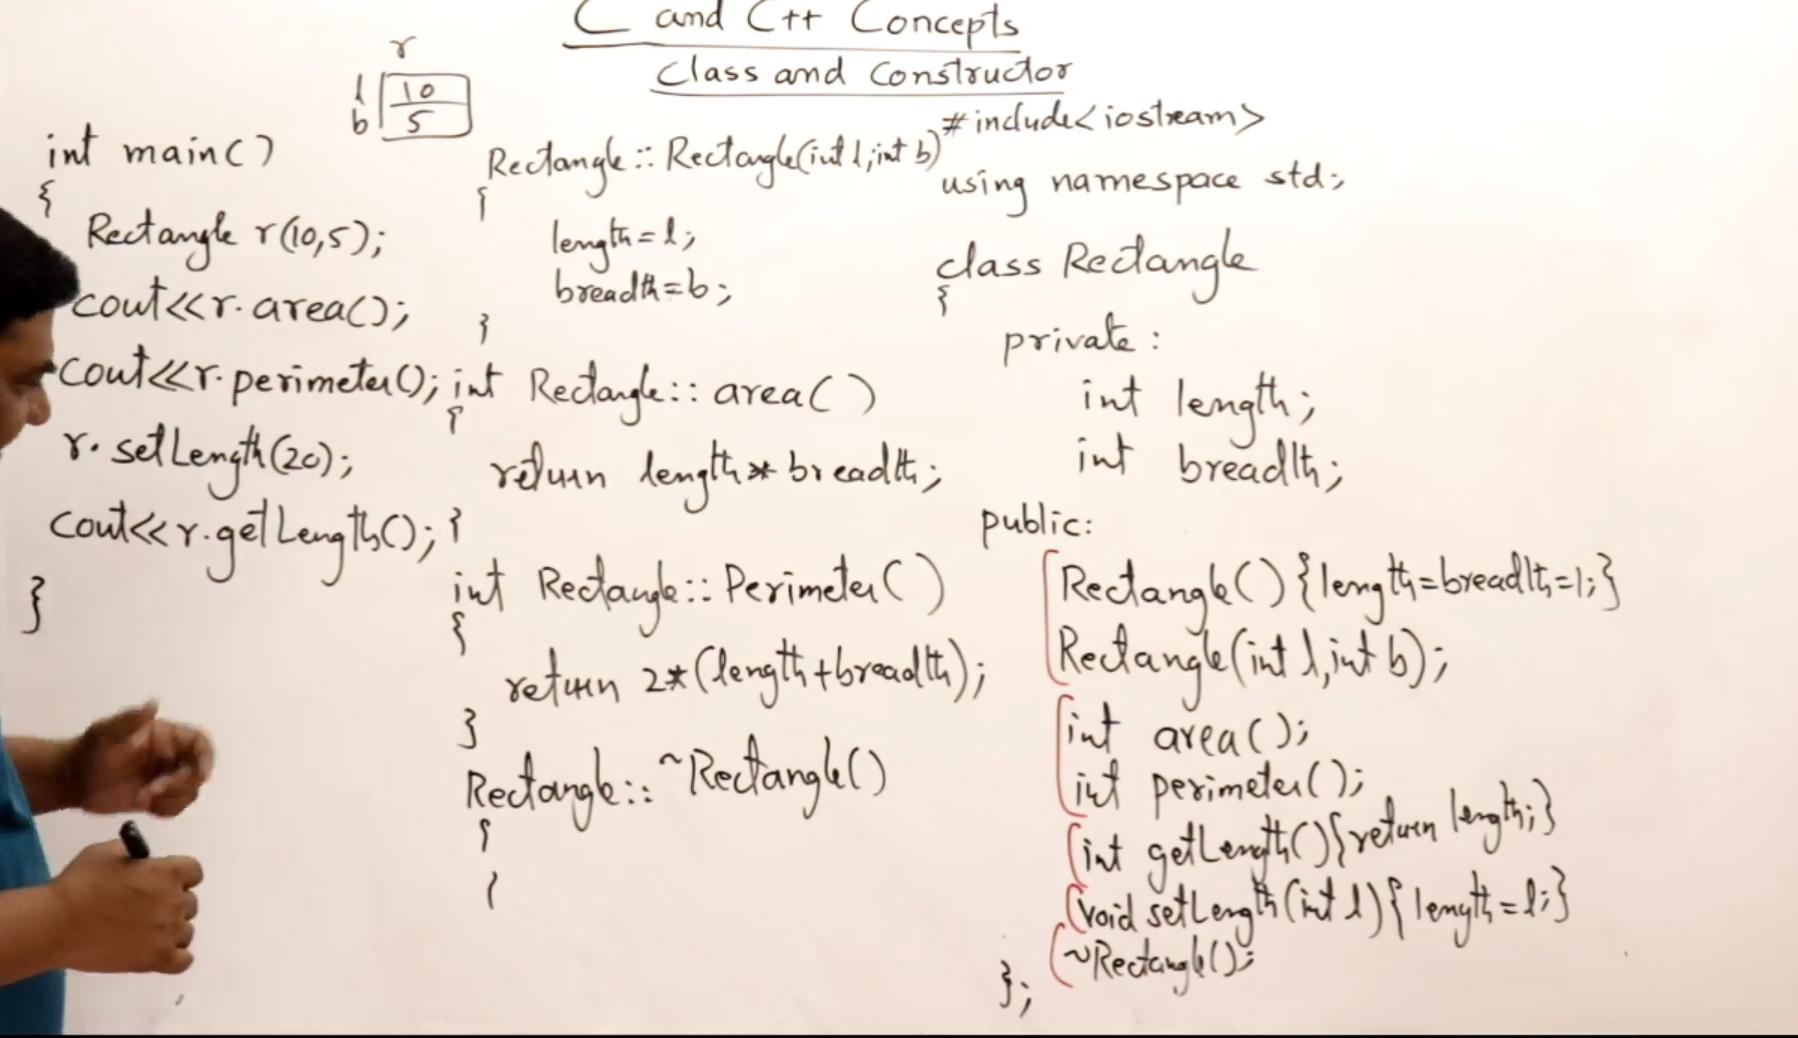 C and C++ Concepts
Class and Constructor
r
l 10
b 5
int main()
{
Rectangle r(10,5);
cout<<r.area();
cout<<r.perimeter();
r.setLength(20);
cout<<r.getLength();
}
Rectangle::Rectangle(int l,int b)
{
length=l;
breadth=b;
}
int Rectangle::area()
{
return length*breadth;
}
int Rectangle::Perimeter()
{
return 2*(length+breadth);
}
Rectangle::~Rectangle()
{
#include<iostream>
using namespace std;
class Rectangle
{
private:
int length;
int breadth;
public:
Rectangle(){length=breadth=1;}
Rectangle(int l,int b);
int area();
int perimeter();
int getLength(){return length;}
void setLength(int l){length=l;}
~Rectangle();
};